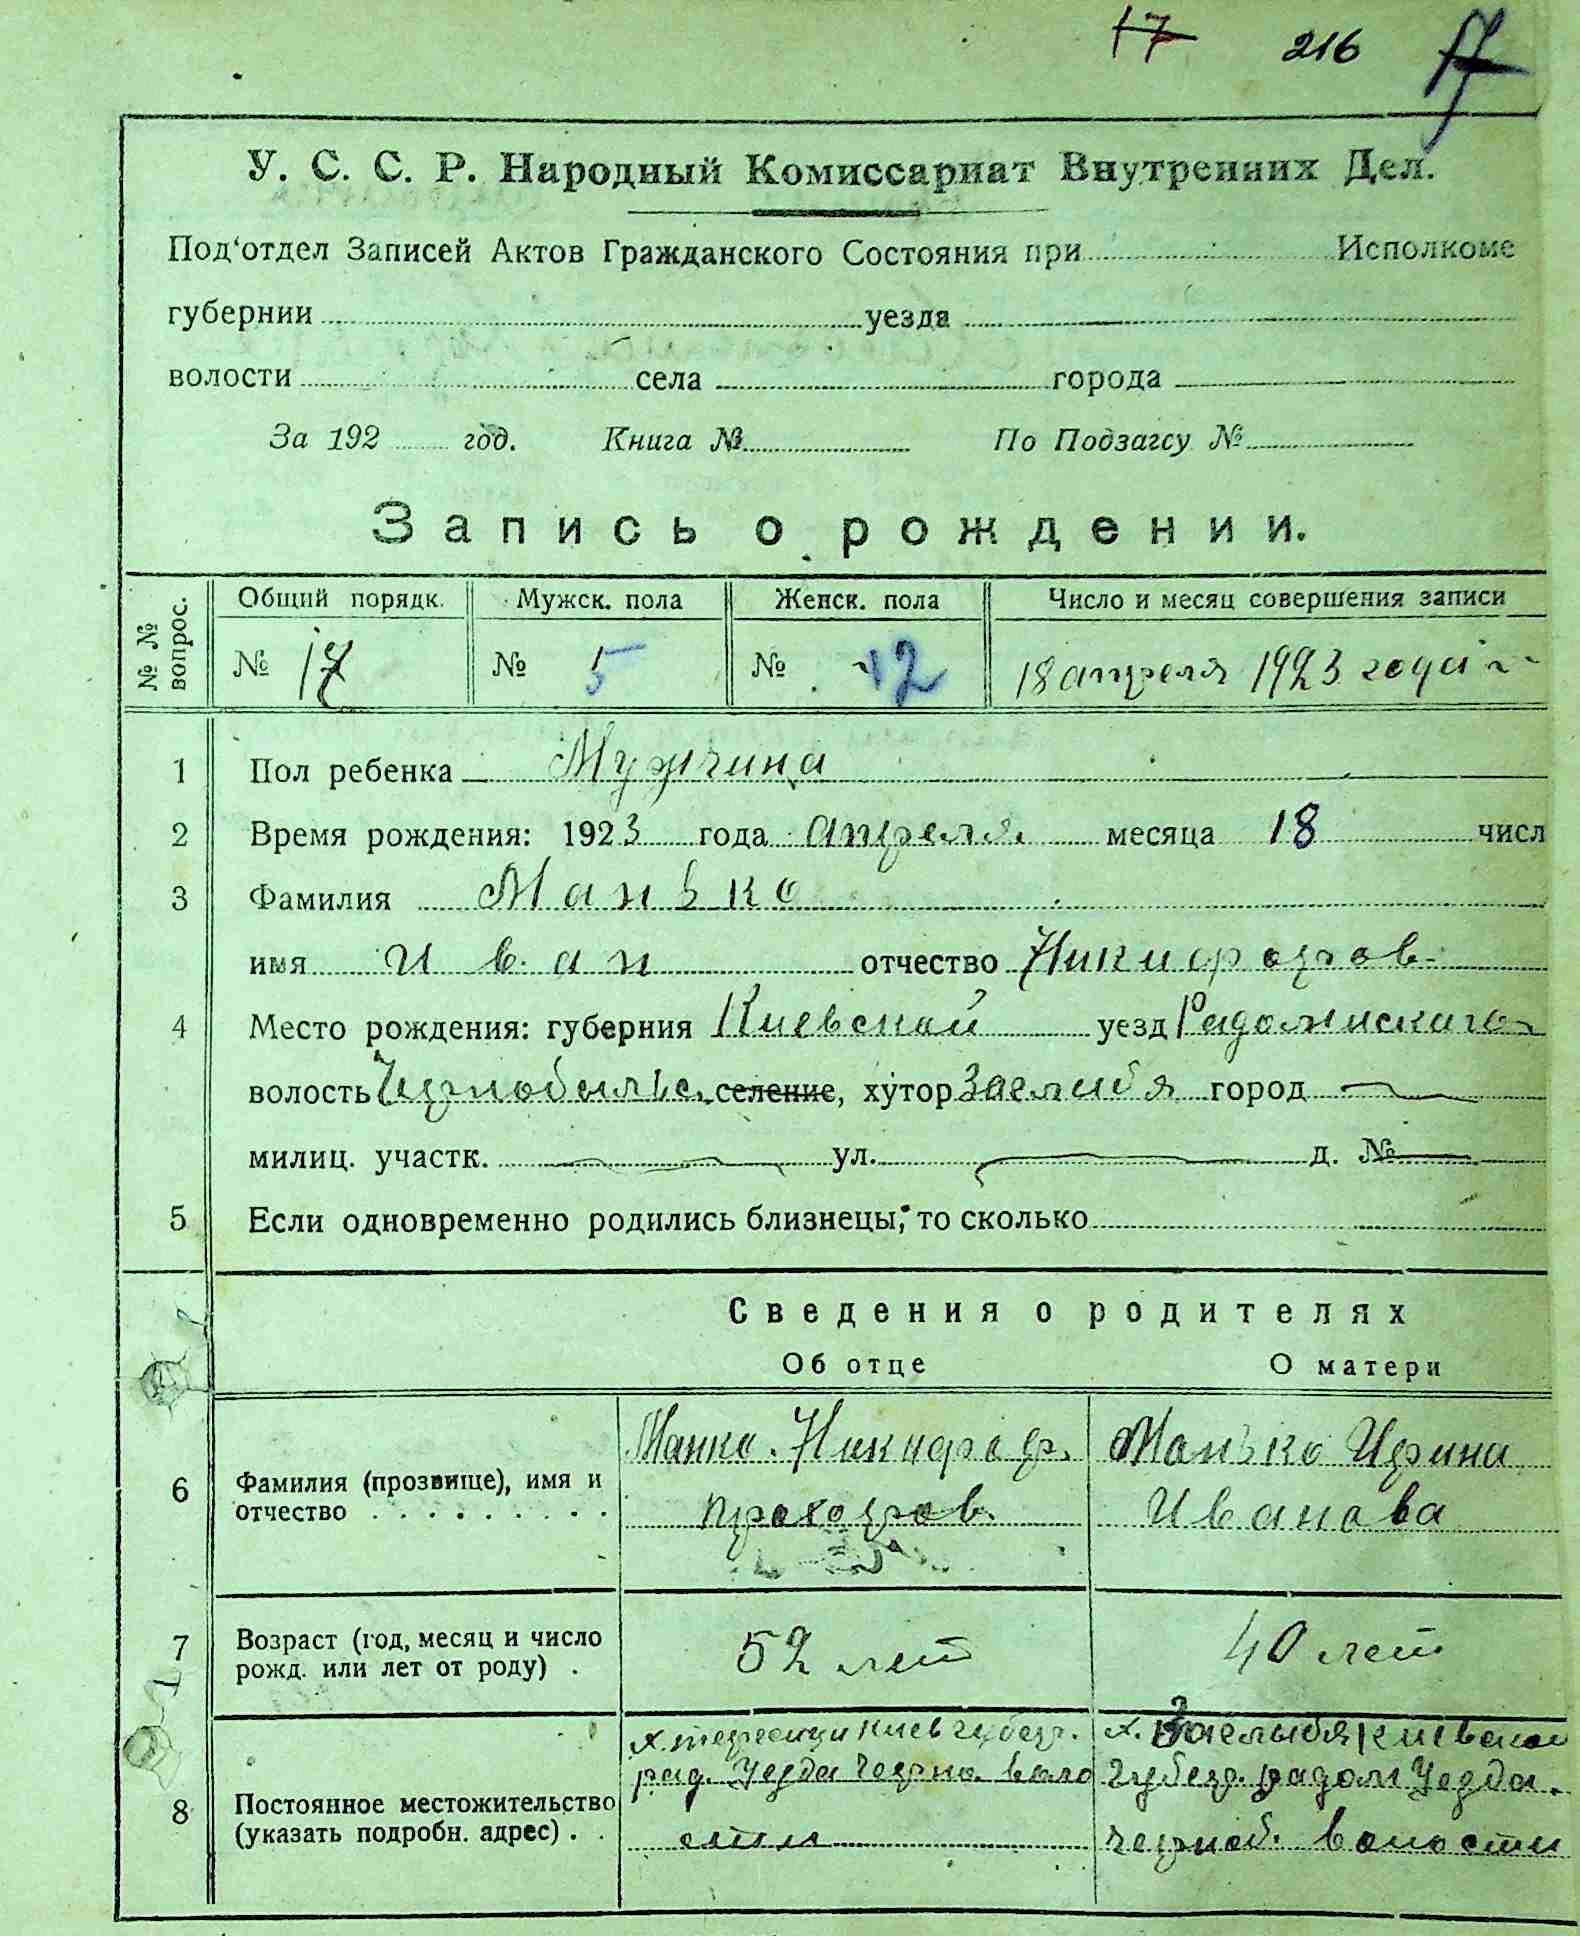 17 216 17
У. С. С. Р. Народный Комиссариат Внутренних Дел.
Под‘отдел Записей Актов Гражданского Состояния при Исполкоме
губернии уезда
волости села города
За 192 год. Книга № По Подзагсу №
Запись о рождении.
№ № вопрос.
Общий порядк. Мужск. пола Женск. пола Число и месяц совершения записи
№ 17 № 5 № 12 18 апреля 1923 года
1 Пол ребенка Мужчина
2 Время рождения: 1923 года апреля месяца 18 числ
3 Фамилия Манько
имя Иван отчество Никифоров
4 Место рождения: губерния Киевской уезд Радомиского
волость Чернобыльс. селение, хутор Заглыбя город
милиц. участк. ул. д. №
5 Если одновременно родились близнецы, то сколько
Сведения о родителях
Об отце О матери
6 Фамилия (прозвище), имя и отчество
Манко Никифор
прохоров
Манько Ирина
Иванова
7 Возраст (год, месяц и число рожд. или лет от роду)
52 лет 40 лет
8 Постоянное местожительство (указать подробн. адрес)
х. Киев губер.
рад. Уезда Черно. воло
сти
х. Киевской
Губер. радом Уезда.
черноб. волости